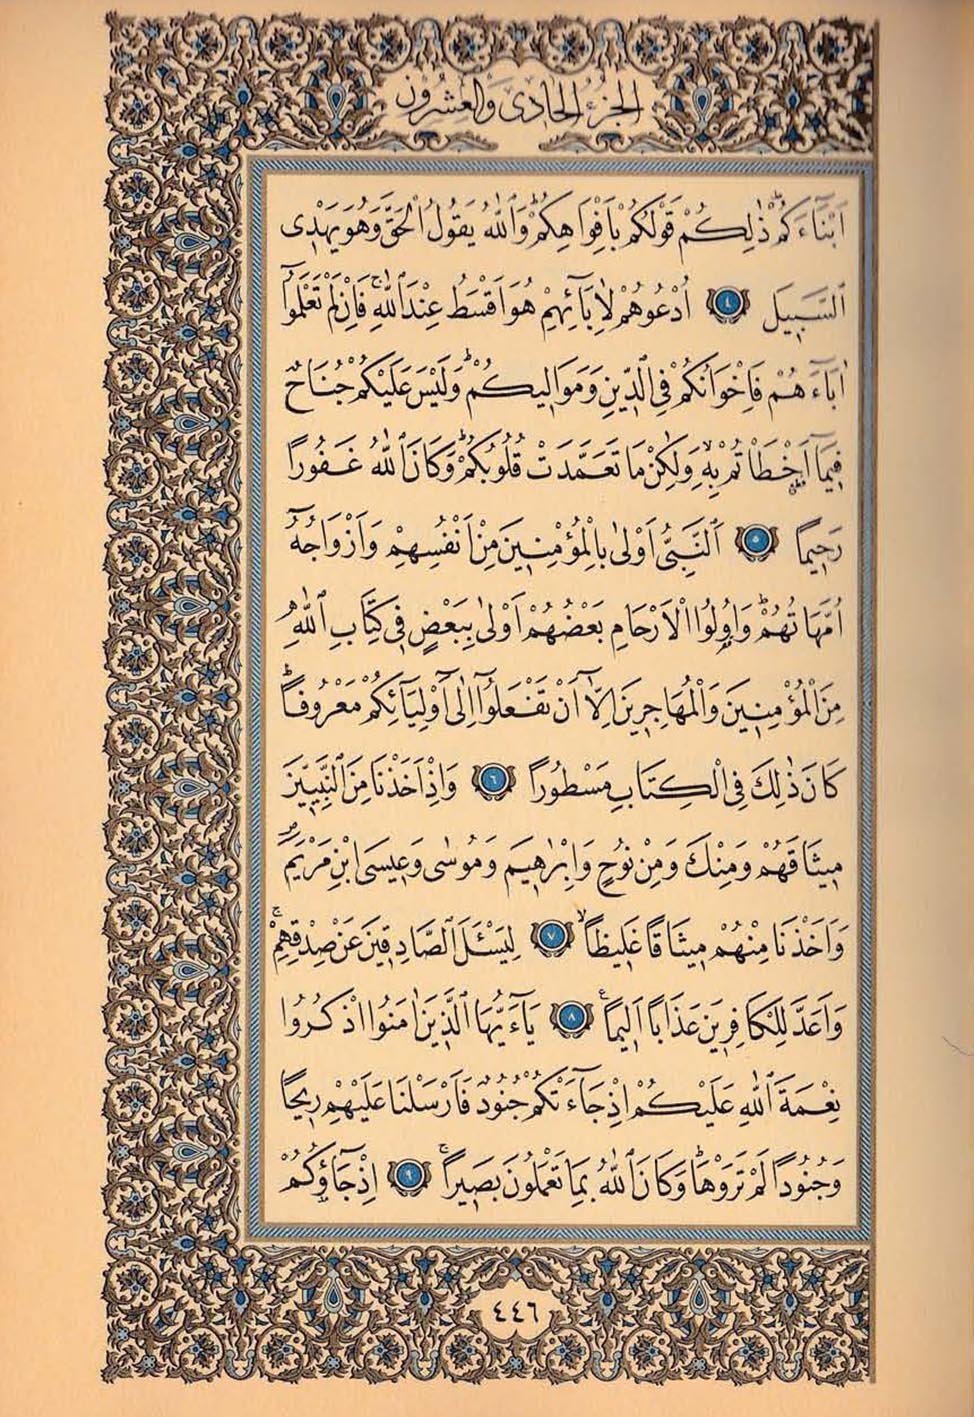 الجزء الحادى والعشرون
اَبْنَٓاءَكُمْۜ ذٰلِكُمْ قَوْلُكُمْ بِاَفْوَاهِكُمْۜ وَاللّٰهُ يَقُولُ الْحَقَّ وَهُوَ يَهْدِى
السَّبٖيلَ ﴿٤﴾ اُدْعُوهُمْ لِاٰبَٓائِهِمْ هُوَ اَقْسَطُ عِنْدَ اللّٰهِۚ فَاِنْ لَمْ تَعْلَمُٓوا
اٰبَٓاءَهُمْ فَاِخْوَانُكُمْ فِى الدّٖينِ وَمَوَالٖيكُمْۜ وَلَيْسَ عَلَيْكُمْ جُنَاحٌ
فٖيمَٓا اَخْطَاْتُمْ بِهٖۙ وَلٰكِنْ مَا تَعَمَّدَتْ قُلُوبُكُمْۜ وَكَانَ اللّٰهُ غَفُورًا
رَحٖيمًا ﴿٥﴾ اَلنَّبِىُّ اَوْلٰى بِالْمُؤْمِنٖينَ مِنْ اَنْفُسِهِمْ وَاَزْوَاجُهُٓ
اُمَّهَاتُهُمْۜ وَاُو۬لُوا الْاَرْحَامِ بَعْضُهُمْ اَوْلٰى بِبَعْضٍ فٖى كِتَابِ اللّٰهِ
مِنَ الْمُؤْمِنٖينَ وَالْمُهَاجِرٖينَ اِلَّٓا اَنْ تَفْعَلُٓوا اِلٰٓى اَوْلِيَٓائِكُمْ مَعْرُوفًاۜ
كَانَ ذٰلِكَ فِى الْكِتَابِ مَسْطُورًا ﴿٦﴾ وَاِذْ اَخَذْنَا مِنَ النَّبِيّٖنَ
مٖيثَاقَهُمْ وَمِنْكَ وَمِنْ نُوحٍ وَاِبْرٰهٖيمَ وَمُوسٰى وَعٖيسَى ابْنِ مَرْيَمَۖ
وَاَخَذْنَا مِنْهُمْ مٖيثَاقًا غَلٖيظًاۙ ﴿٧﴾ لِيَسْـَٔلَ الصَّادِقٖينَ عَنْ صِدْقِهِمْۚ
وَاَعَدَّ لِلْكَافِرٖينَ عَذَابًا اَلٖيمًا۟ ﴿٨﴾ يَٓا اَيُّهَا الَّذٖينَ اٰمَنُوا اذْكُرُوا
نِعْمَةَ اللّٰهِ عَلَيْكُمْ اِذْ جَٓاءَتْكُمْ جُنُودٌ فَاَرْسَلْنَا عَلَيْهِمْ رٖيحًا
وَجُنُودًا لَمْ تَرَوْهَاۜ وَكَانَ اللّٰهُ بِمَا تَعْمَلُونَ بَصٖيرًاۚ ﴿٩﴾ اِذْ جَٓاؤُ۫كُمْ
٤٤٦